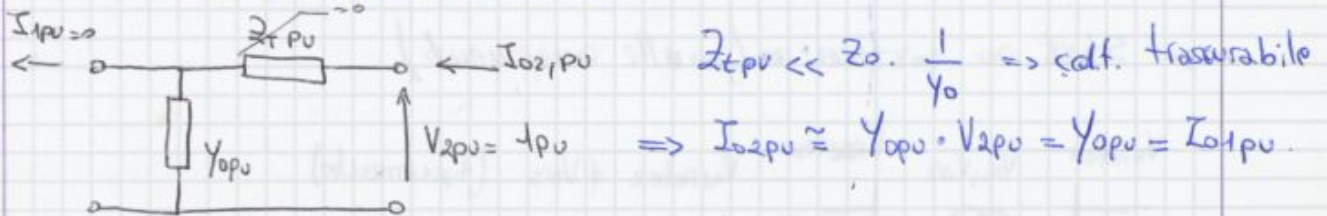 I1pu=0
Zt pu
=0
I02,pu
Y0pu
V2pu= 1pu
Ztpu << Z0. 1/Y0 => cdt. trascurabile
=> I02pu ≅ Y0pu · V2pu = Y0pu = I01pu.